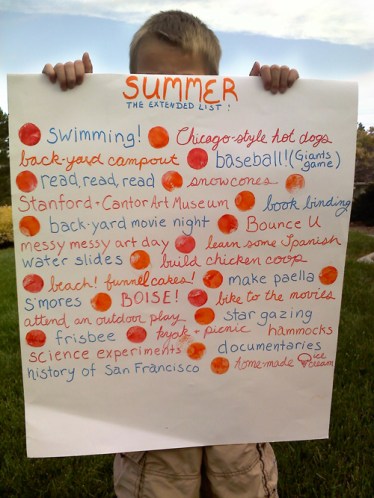 SUMMER
THE EXTENDED LIST!
swimming! Chicago-style hot dogs
back-yard campout baseball! (Giants game)
read, read, read snowcones
Stanford + Cantor Art Museum book binding
back-yard movie night Bounce U
messy messy art day learn some Spanish
water slides build chicken coop
beach! funnel cakes! make paella
s'mores BOISE! bike to the movies
attend an outdoor play star gazing
frisbee kyak + picnic hammocks
science experiments documentaries
history of San Francisco home-made ice cream